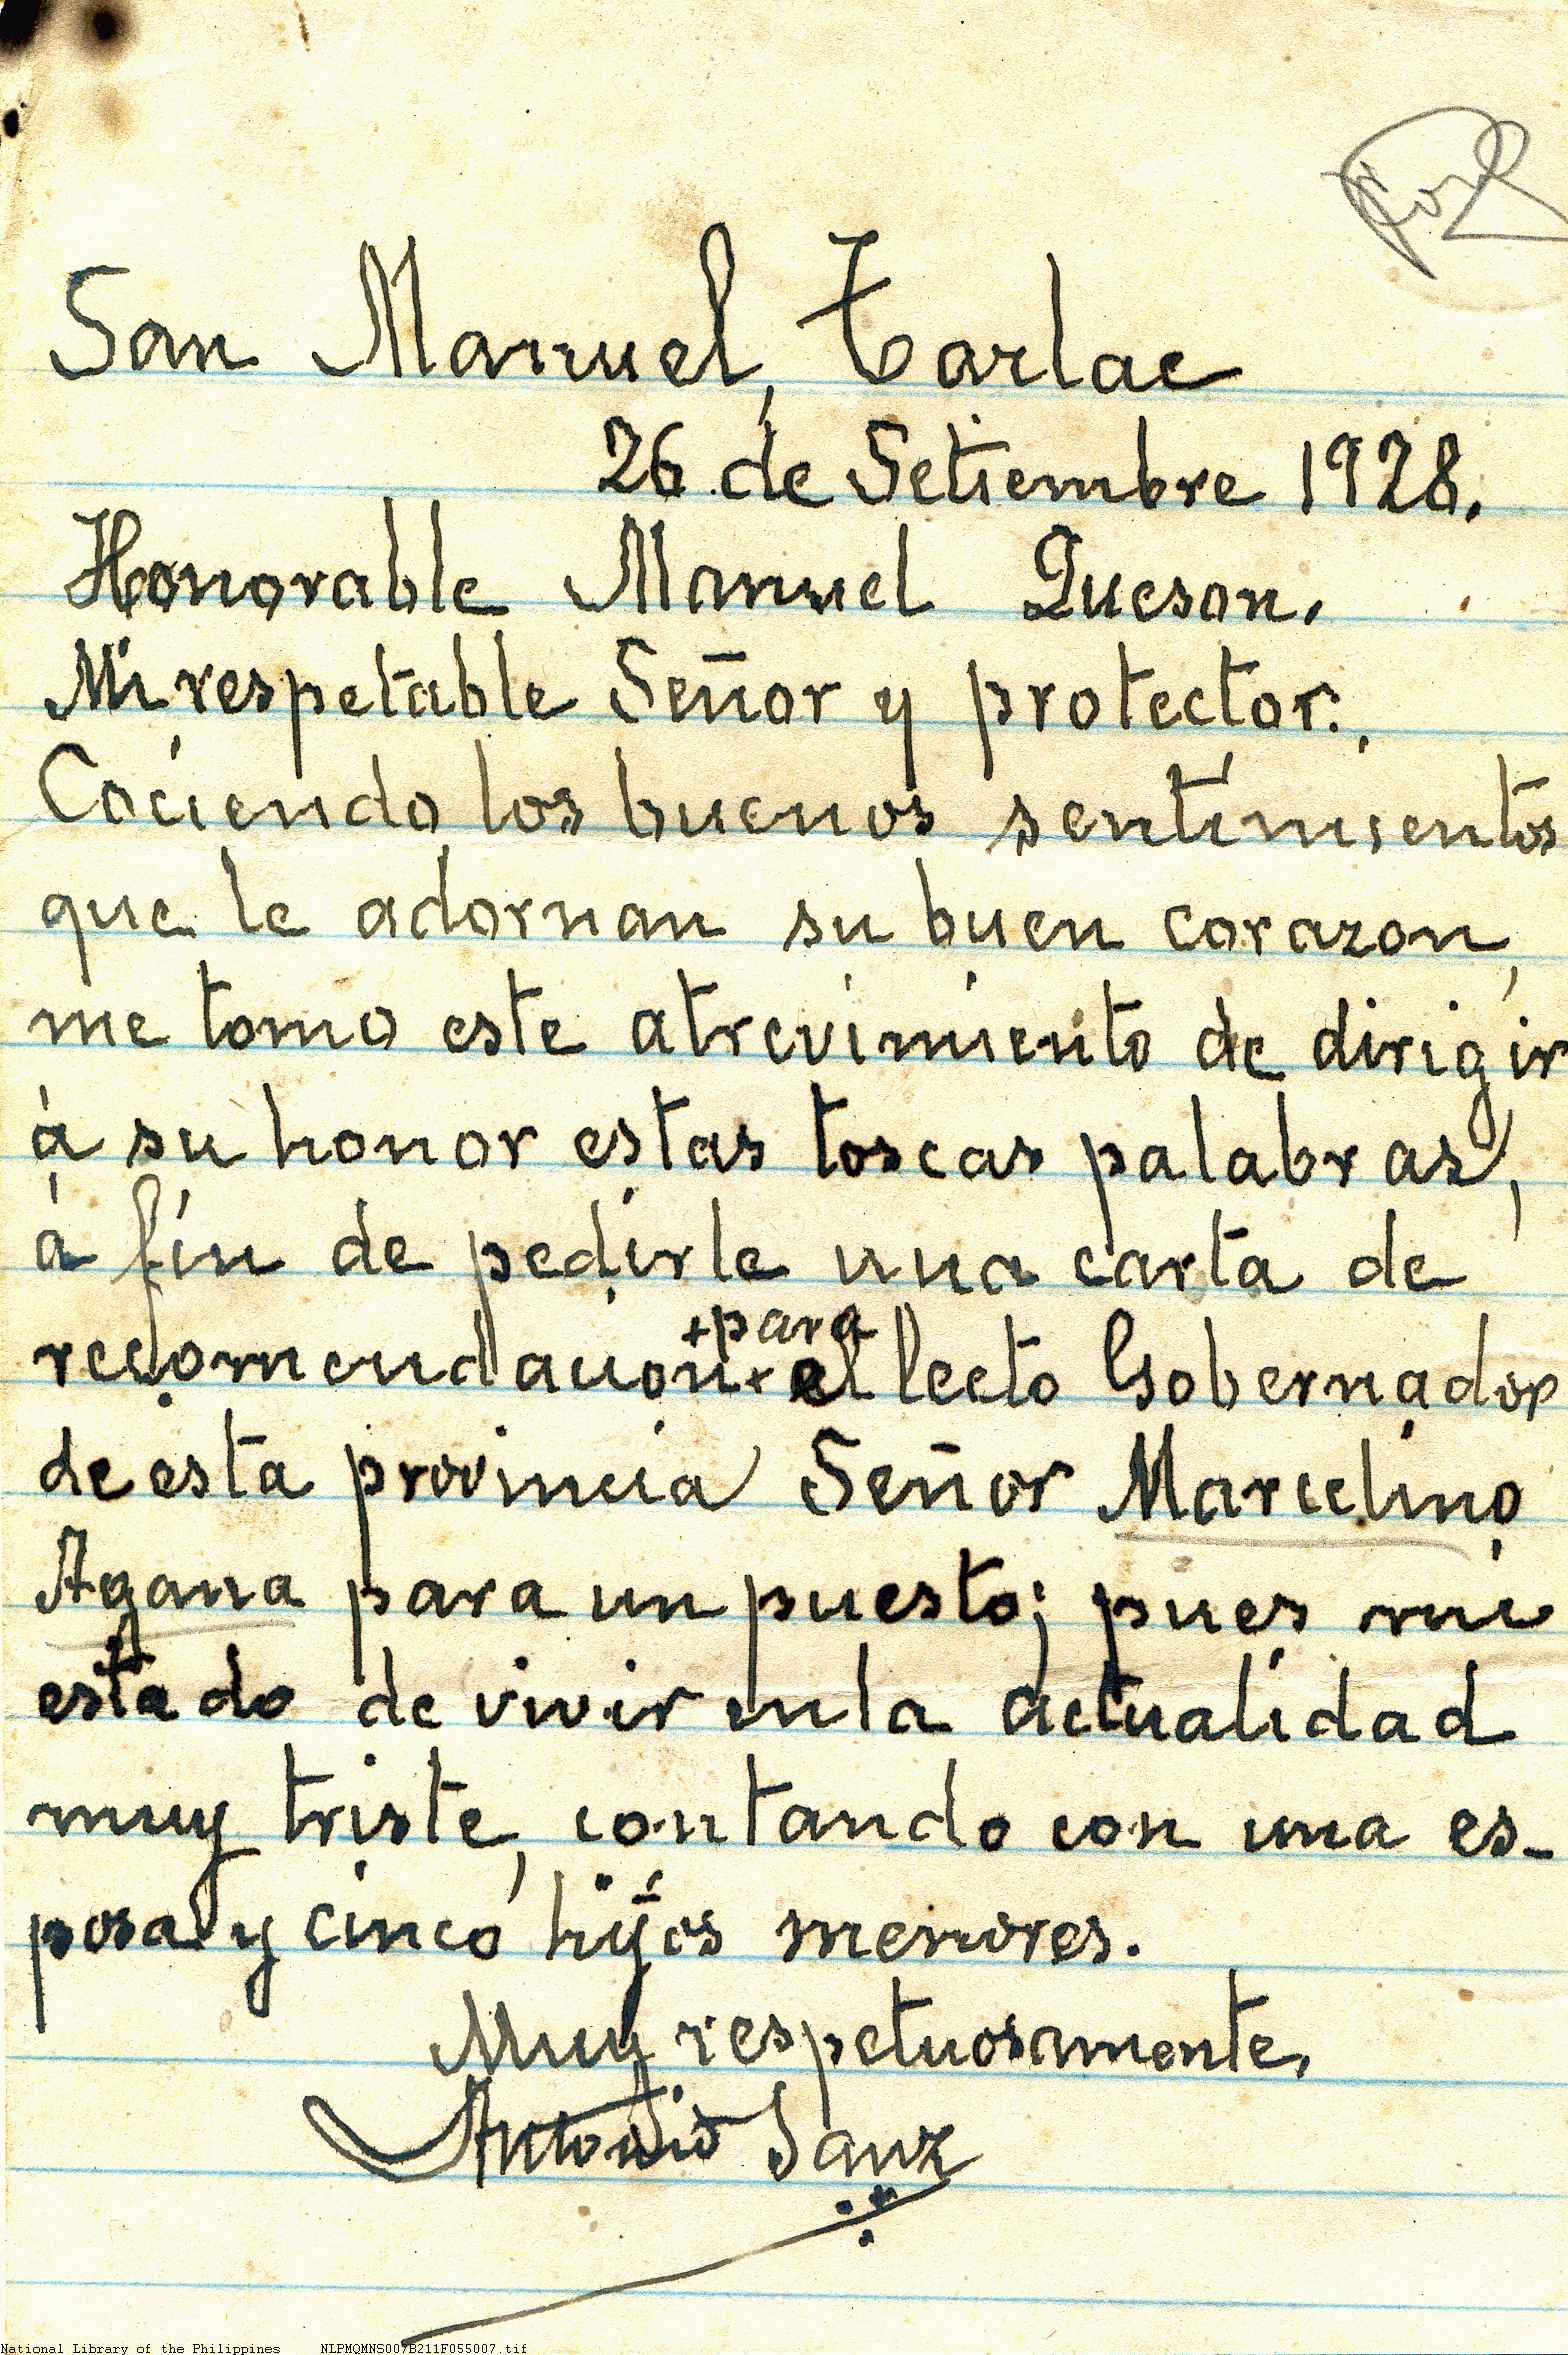 San Manuel, Tarlac
26 de Setiembre 1928.
Honorable Manuel Queson.
Mi respetable Señor y protector:
Cociendo los buenos sentimientos
que le adornan su buen corazon,
me tomo este atrevimiento de dirigir
á su honor estas toscas palabras,
á fin de pedirle una carta de
+para
recomendacion+ el lecto Gobernador
de esta provincia Señor Marcelino
Agana para un puesto; pues mi
estado de vivir en la actualidad
muy triste, contando con una es-
posa y cinco hijos menores.
Muy respetuosamente,
Antonio Sanz
National Library of the Philippines NLPMQMNS007B211F055007.tif